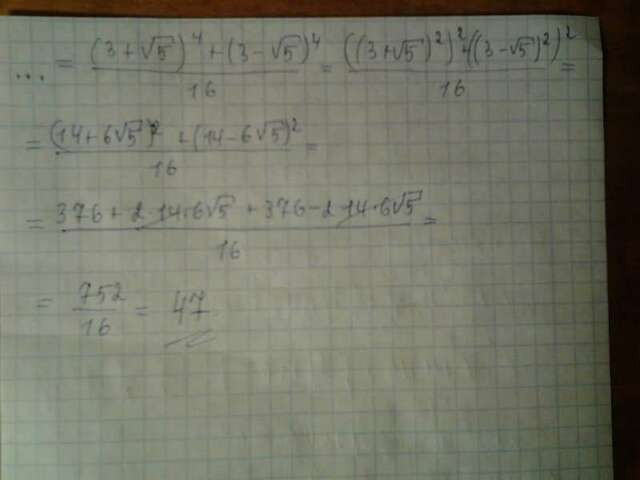 ... = ((3+√5)^4 + (3-√5)^4)/16 = (((3+√5)^2)^2 + ((3-√5)^2)^2)/16 =
= ((14+6√5)^2 + (14-6√5)^2)/16 =
= (376 + 2·14·6√5 + 376 - 2·14·6√5)/16 =
= 752/16 = 47